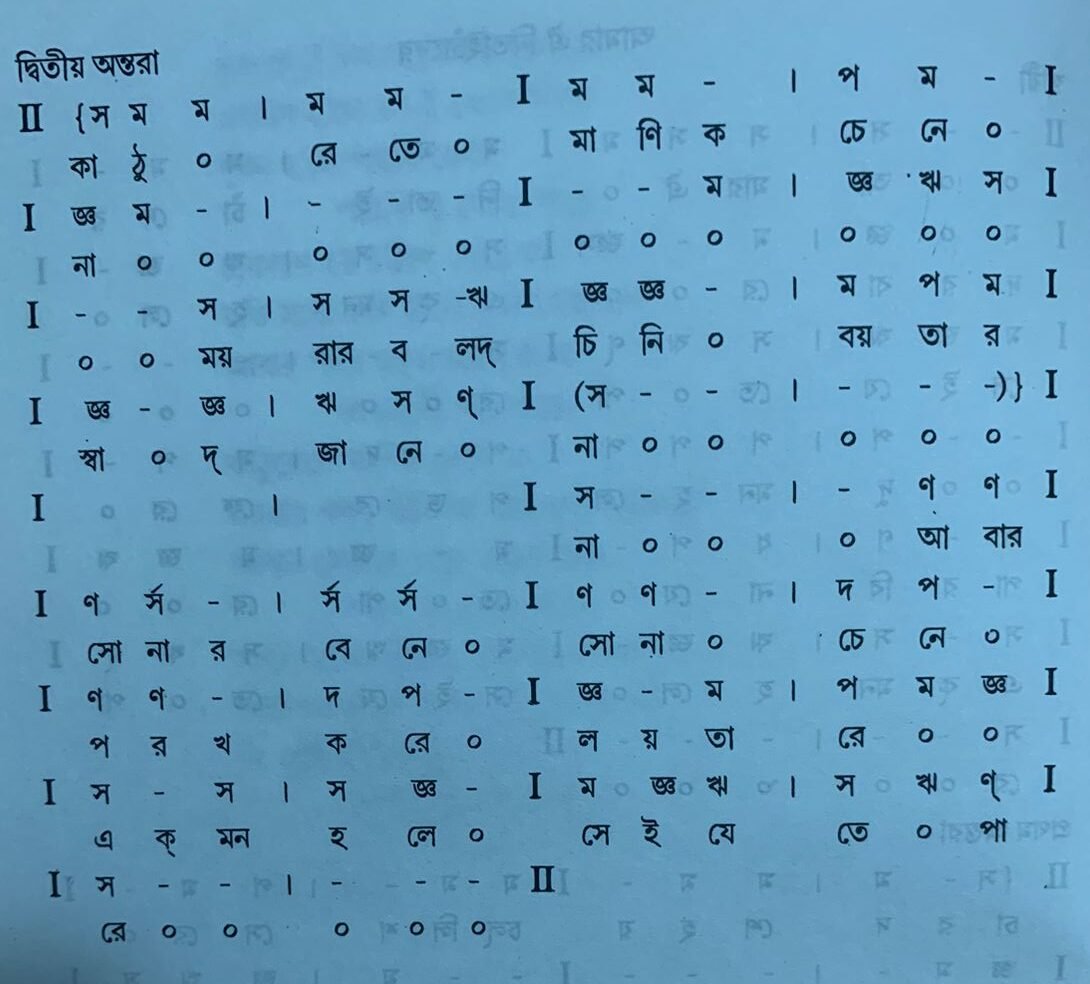 দ্বিতীয় অন্তরা
II {স ম ম । ম ম - I ম ম - । প ম - I
কা ঠু ০ রে তে ০ মা ণি ক চে নে ০
I জ্ঞ ম - । - - - I - - ম । জ্ঞ ঋ স I
না ০ ০ ০ ০ ০ ০ ০ ০ ০ ০ ০
I - - স । স স -ঋ I জ্ঞ জ্ঞ - । ম প ম I
০ ০ ময় রার ব লদ্ চি নি ০ বয় তা র
I জ্ঞ - জ্ঞ । ঋ স ণ্ I (স - - । - - -)} I
স্বা ০ দ্ জা নে ০ না ০ ০ ০ ০ ০
I । I স - - । - ণ ণ I
না ০ ০ ০ আ বার
I ণ র্স - । র্স র্স - I ণ ণ - । দ প - I
সো না র বে নে ০ সো না ০ চে নে ০
I ণ ণ - । দ প - I জ্ঞ - ম । প ম জ্ঞ I
প র খ ক রে ০ ল য় তা রে ০ ০
I স - স । স জ্ঞ - I ম জ্ঞ ঋ । স ঋ ণ্ I
এ ক্ মন হ লে ০ সে ই যে তে ০ পা
I স - - । - - - II
রে ০ ০ ০ ০ ০